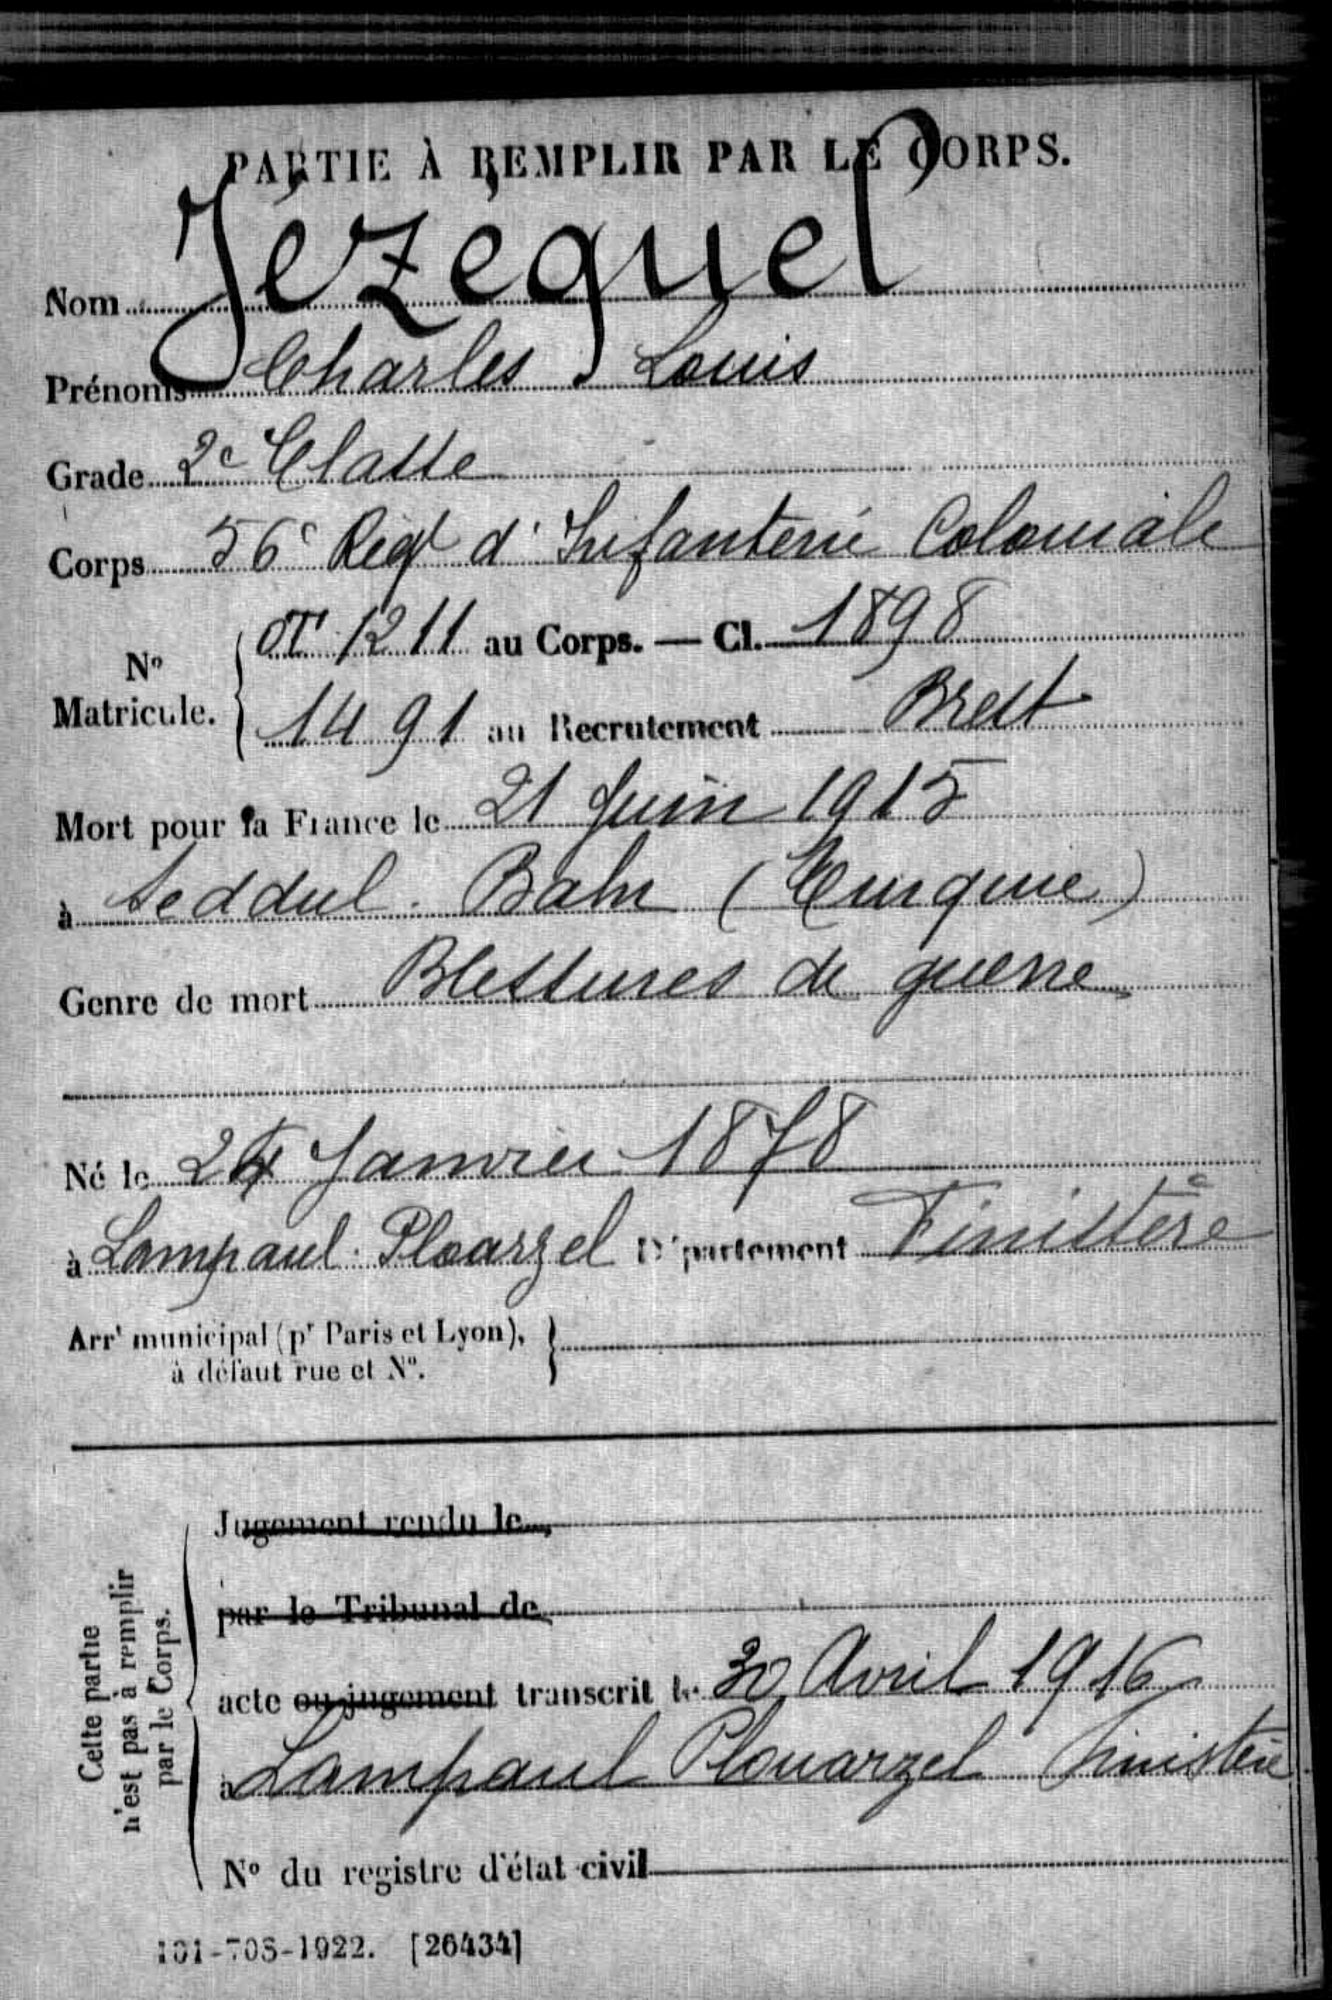 PARTIE À REMPLIR PAR LE CORPS.
Nom Jézéquel
Prénoms Charles Louis
Grade 2e Classe
Corps 56e Régt d'Infanterie Coloniale
No Matricule. { OT 1211 au Corps. — Cl. 1898
1491 au Recrutement Brest
Mort pour la France le 21 Juin 1915
à Seddul. Bahr (Turquie)
Genre de mort Blessures de guerre
Né le 24 Janvier 1878
à Lampaul. Ploarzel Département Finistère
Arrt municipal (pr Paris et Lyon), }
à défaut rue et No.
Cette partie
n'est pas à remplir
par le Corps.
Jugement rendu le
par le Tribunal de
acte ou jugement transcrit le 30 Avril 1916
à Lampaul Plouarzel Finistère
No du registre d'état civil
101-708-1922. [26434]